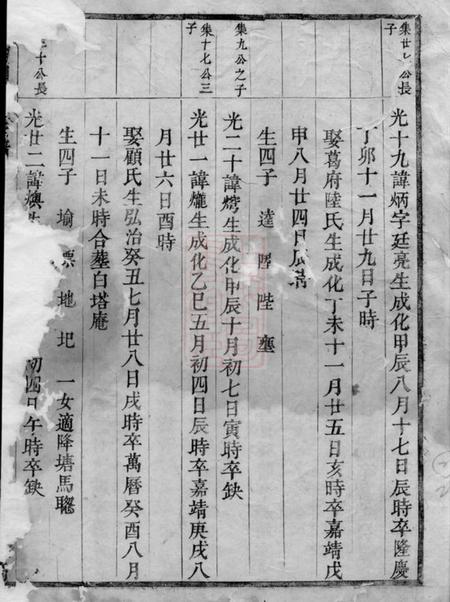 集廿公長
子
光十九諱炳字廷亮生成化甲辰八月十七日辰時卒隆慶
丁卯十一月廿九日子時
娶葛府陸氏生成化丁未十一月廿五日亥時卒嘉靖戊
申八月廿四日辰時
生四子 達 陞 陛 壅
集九公之子
光二十諱 生成化甲辰十月初七日寅時卒缺
集十七公三
子
光廿一諱 生成化乙巳五月初四日辰時卒嘉靖庚戌八
月廿六日酉時
娶顧氏生弘治癸丑七月廿八日戌時卒萬曆癸酉八月
十一日未時合塟白塔庵
生四子 堬 㙽 地 圯 一女適降塘馬驄
十公長
光廿二諱 初四日午時卒缺